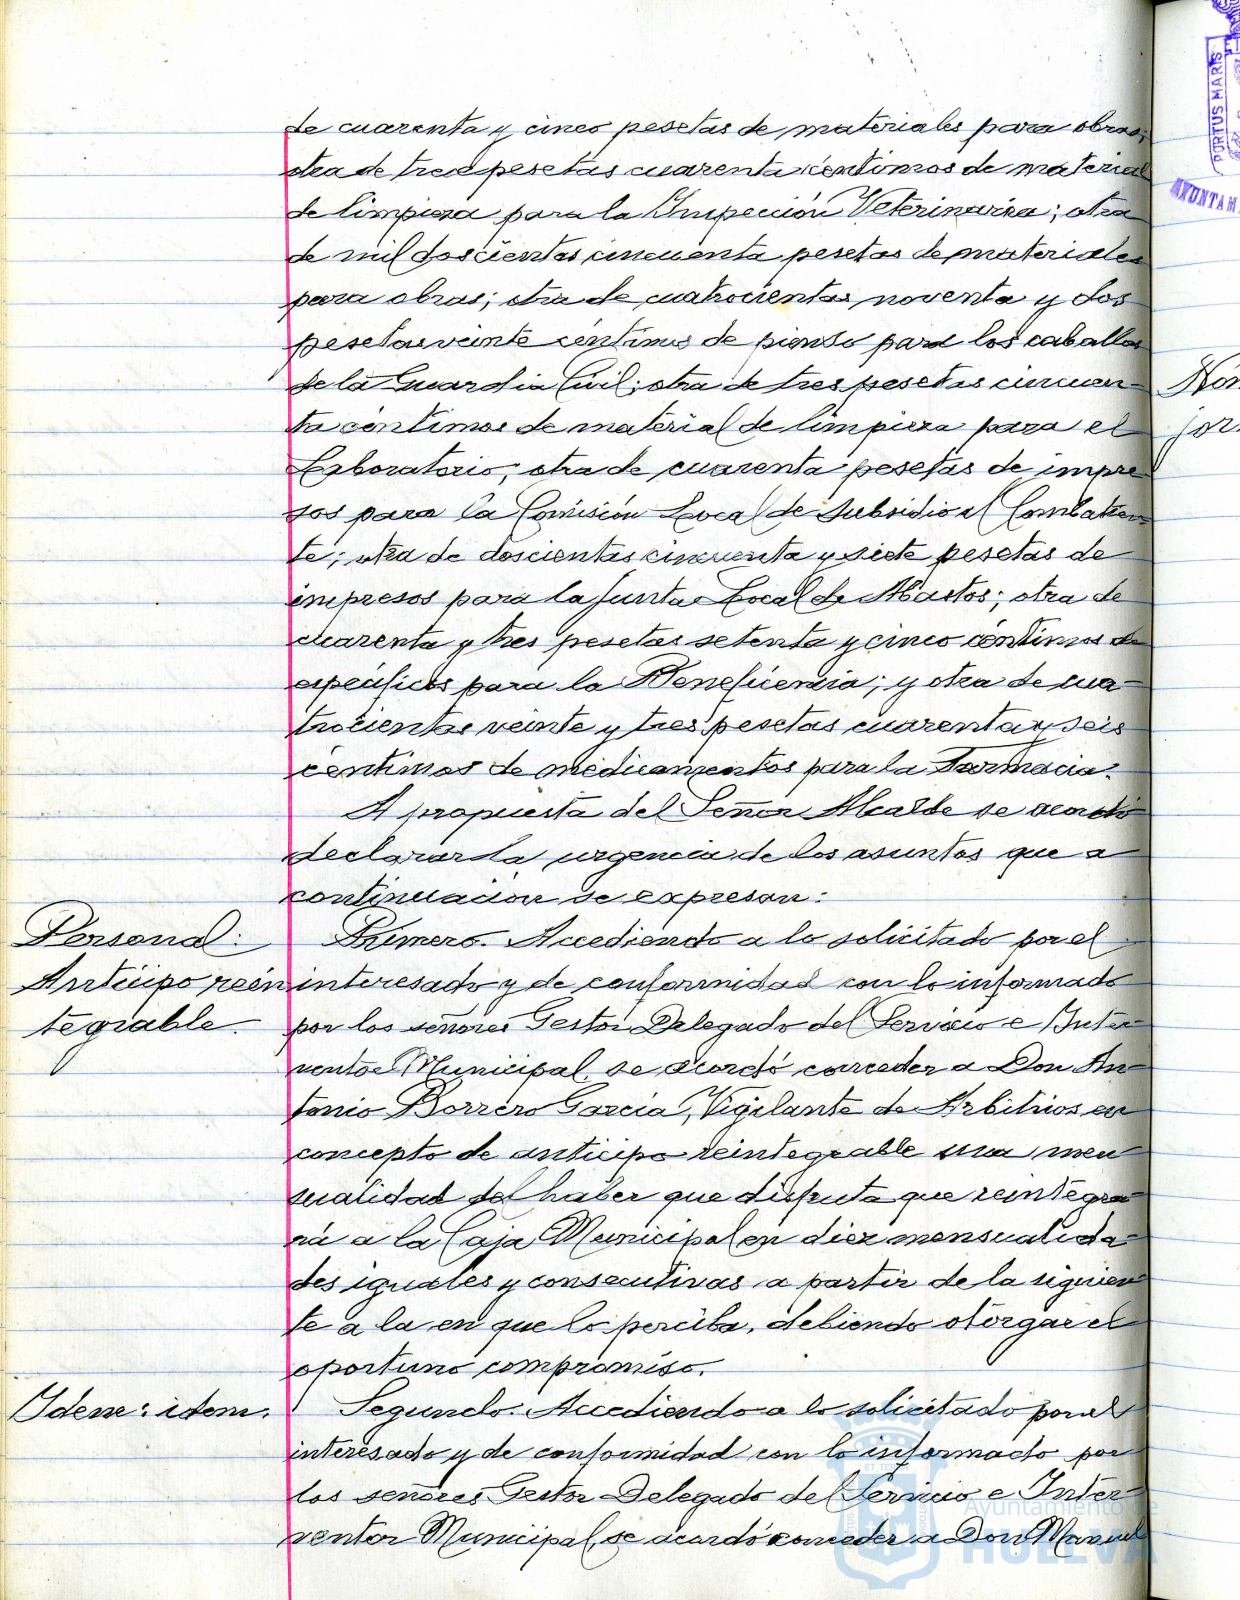 de cuarenta y cinco pesetas de materiales para obras;
otra de trece pesetas cuarenta céntimos de material
de limpieza para la Inspección Veterinaria; otra
de mil doscientas cincuenta pesetas de materiales
para obras; otra de cuatrocientas noventa y dos
pesetas veinte céntimos de pienso para los caballos
de la Guardia Civil; otra de tres pesetas cincuen-
ta céntimos de material de limpieza para el
Laboratorio; otra de cuarenta pesetas de impre
sos para la Comisión Local de Subsidio al Combatien
te; otra de doscientas cincuenta y siete pesetas de
impresos para la Junta Local de Abastos; otra de
cuarenta y tres pesetas setenta y cinco céntimos de
específicos para la Beneficencia; y otra de cua-
trocientas veinte y tres pesetas cuarenta y seis
céntimos de medicamentos para la Farmacia.
A propuesta del Señor Alcalde se acordó
declarar la urgencia de los asuntos que a
continuación se expresan:
Personal:
Anticipo rein
tegrable.
Primero. Accediendo a lo solicitado por el
interesado y de conformidad con lo informado
por los señores Gestor Delegado del Servicio e Inter-
ventor Municipal, se acordó conceder a Don An-
tonio Borrero García, Vigilante de Arbitrios en
concepto de anticipo reintegrable una men
sualidad del haber que disfruta que reintegra-
rá a la Caja Municipal en diez mensualida-
des iguales y consecutivas a partir de la siguien
te a la en que lo perciba, debiendo otorgar el
oportuno compromiso.
Idem: idem.
Segundo. Accediendo a lo solicitado por el
interesado y de conformidad con lo informado por
los señores Gestor Delegado del Servicio e Inter-
ventor Municipal, se acordó conceder a Don Manuel
PORTUS MARIS
AYUNTAM
Ayuntamiento de
HUELVA